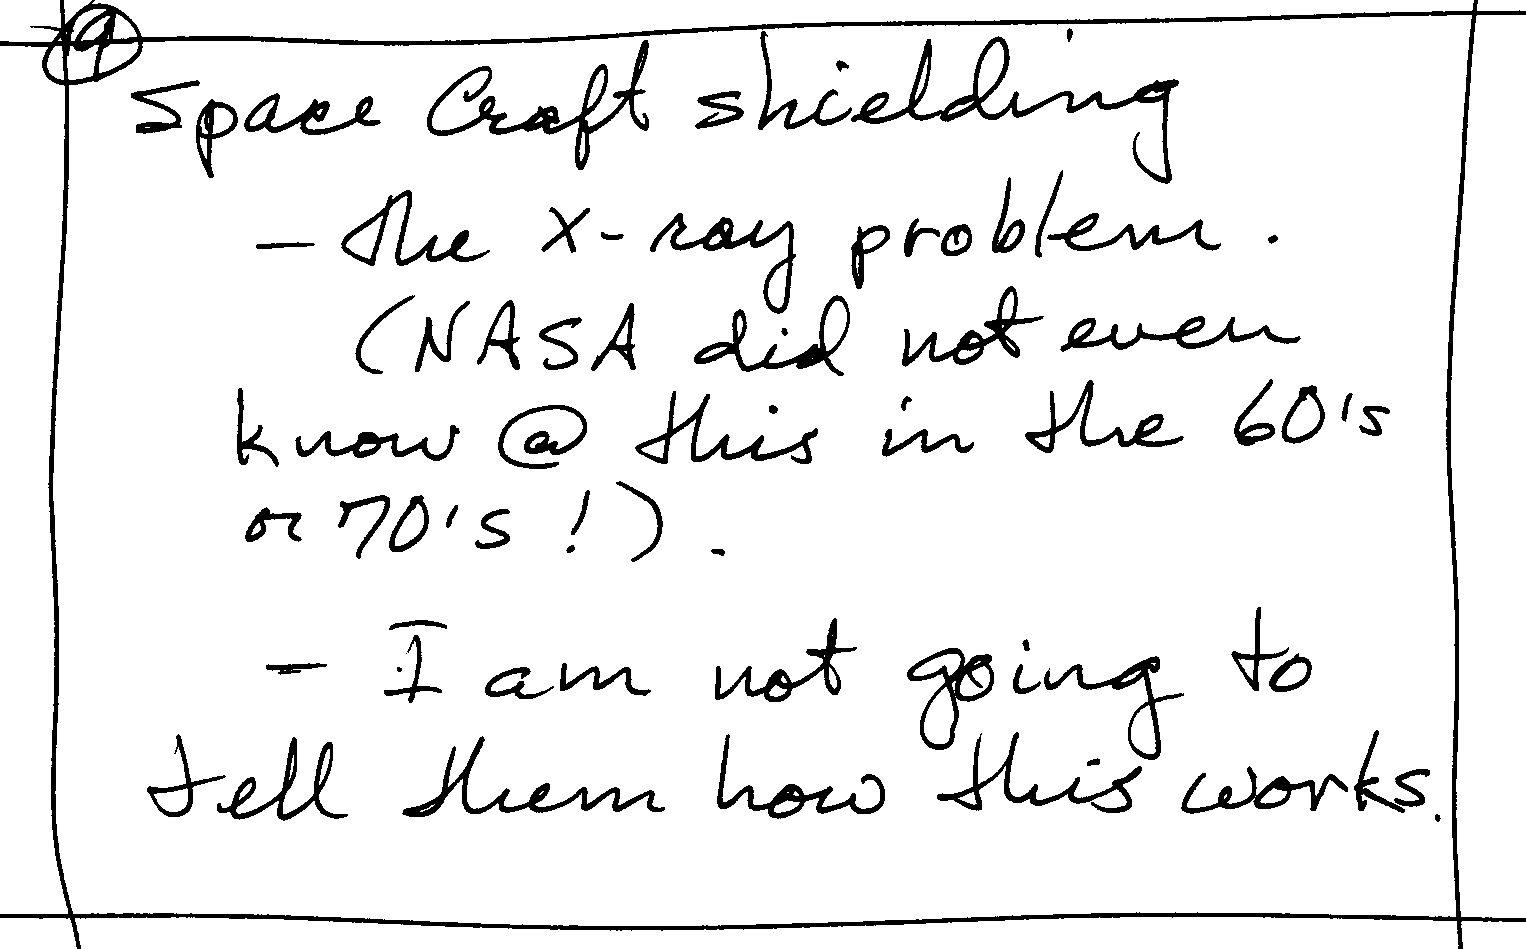 19
Space Craft shielding
- The x-ray problem.
(NASA did not even
know @ this in the 60's
or 70's!).
- I am not going to
tell them how this works.